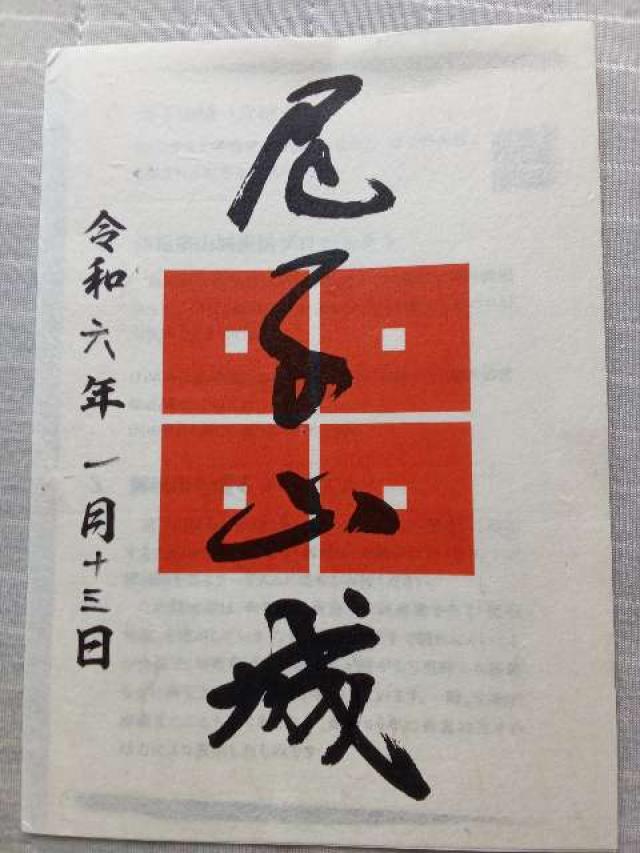 尼子山城
令和六年一月十三日